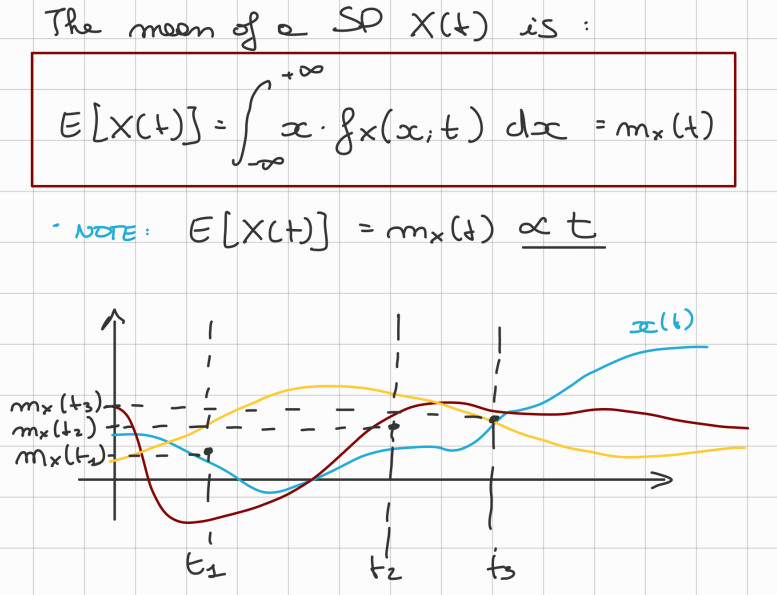 The mean of a SP X(t) is :
E[X(t)] = ∫_{-∞}^{+∞} x · f_X(x; t) dx = m_x(t)
· NOTE: E[X(t)] = m_x(t) ∝ t
x(t)
m_x(t_3)
m_x(t_2)
m_x(t_1)
t_1 t_2 t_3